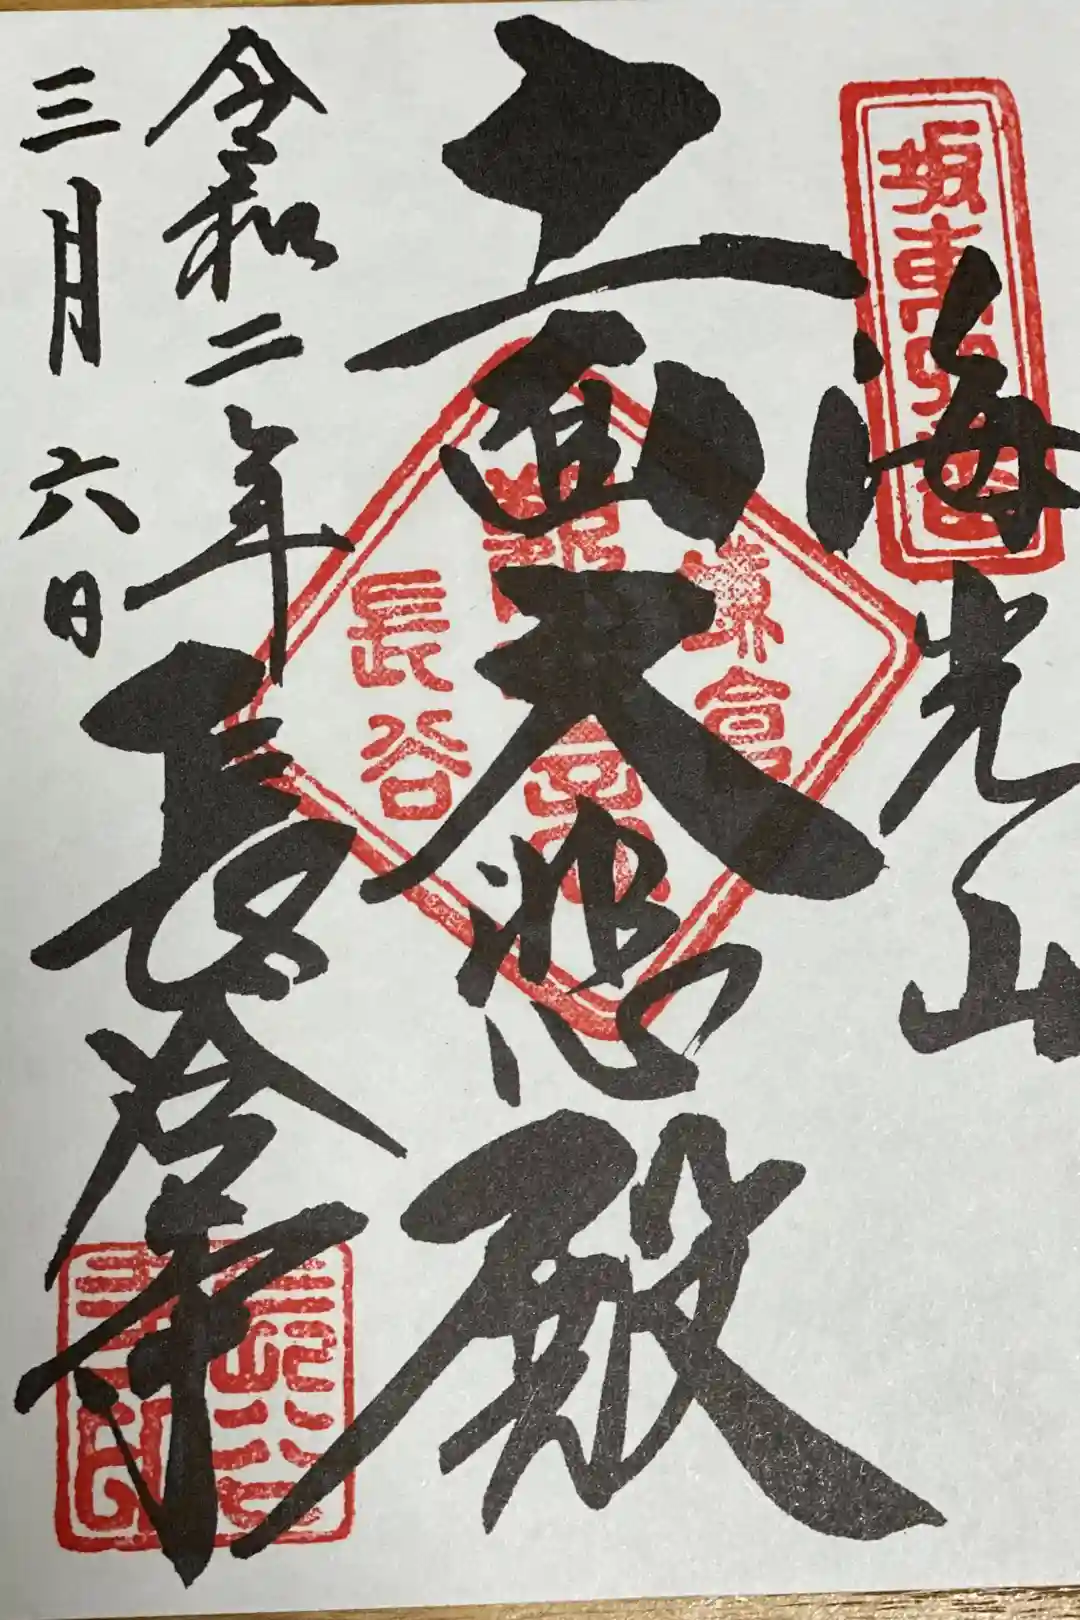 坂東四番
海光山
十一面大悲殿
鎌倉
長谷
令和二年
三月六日
長谷寺